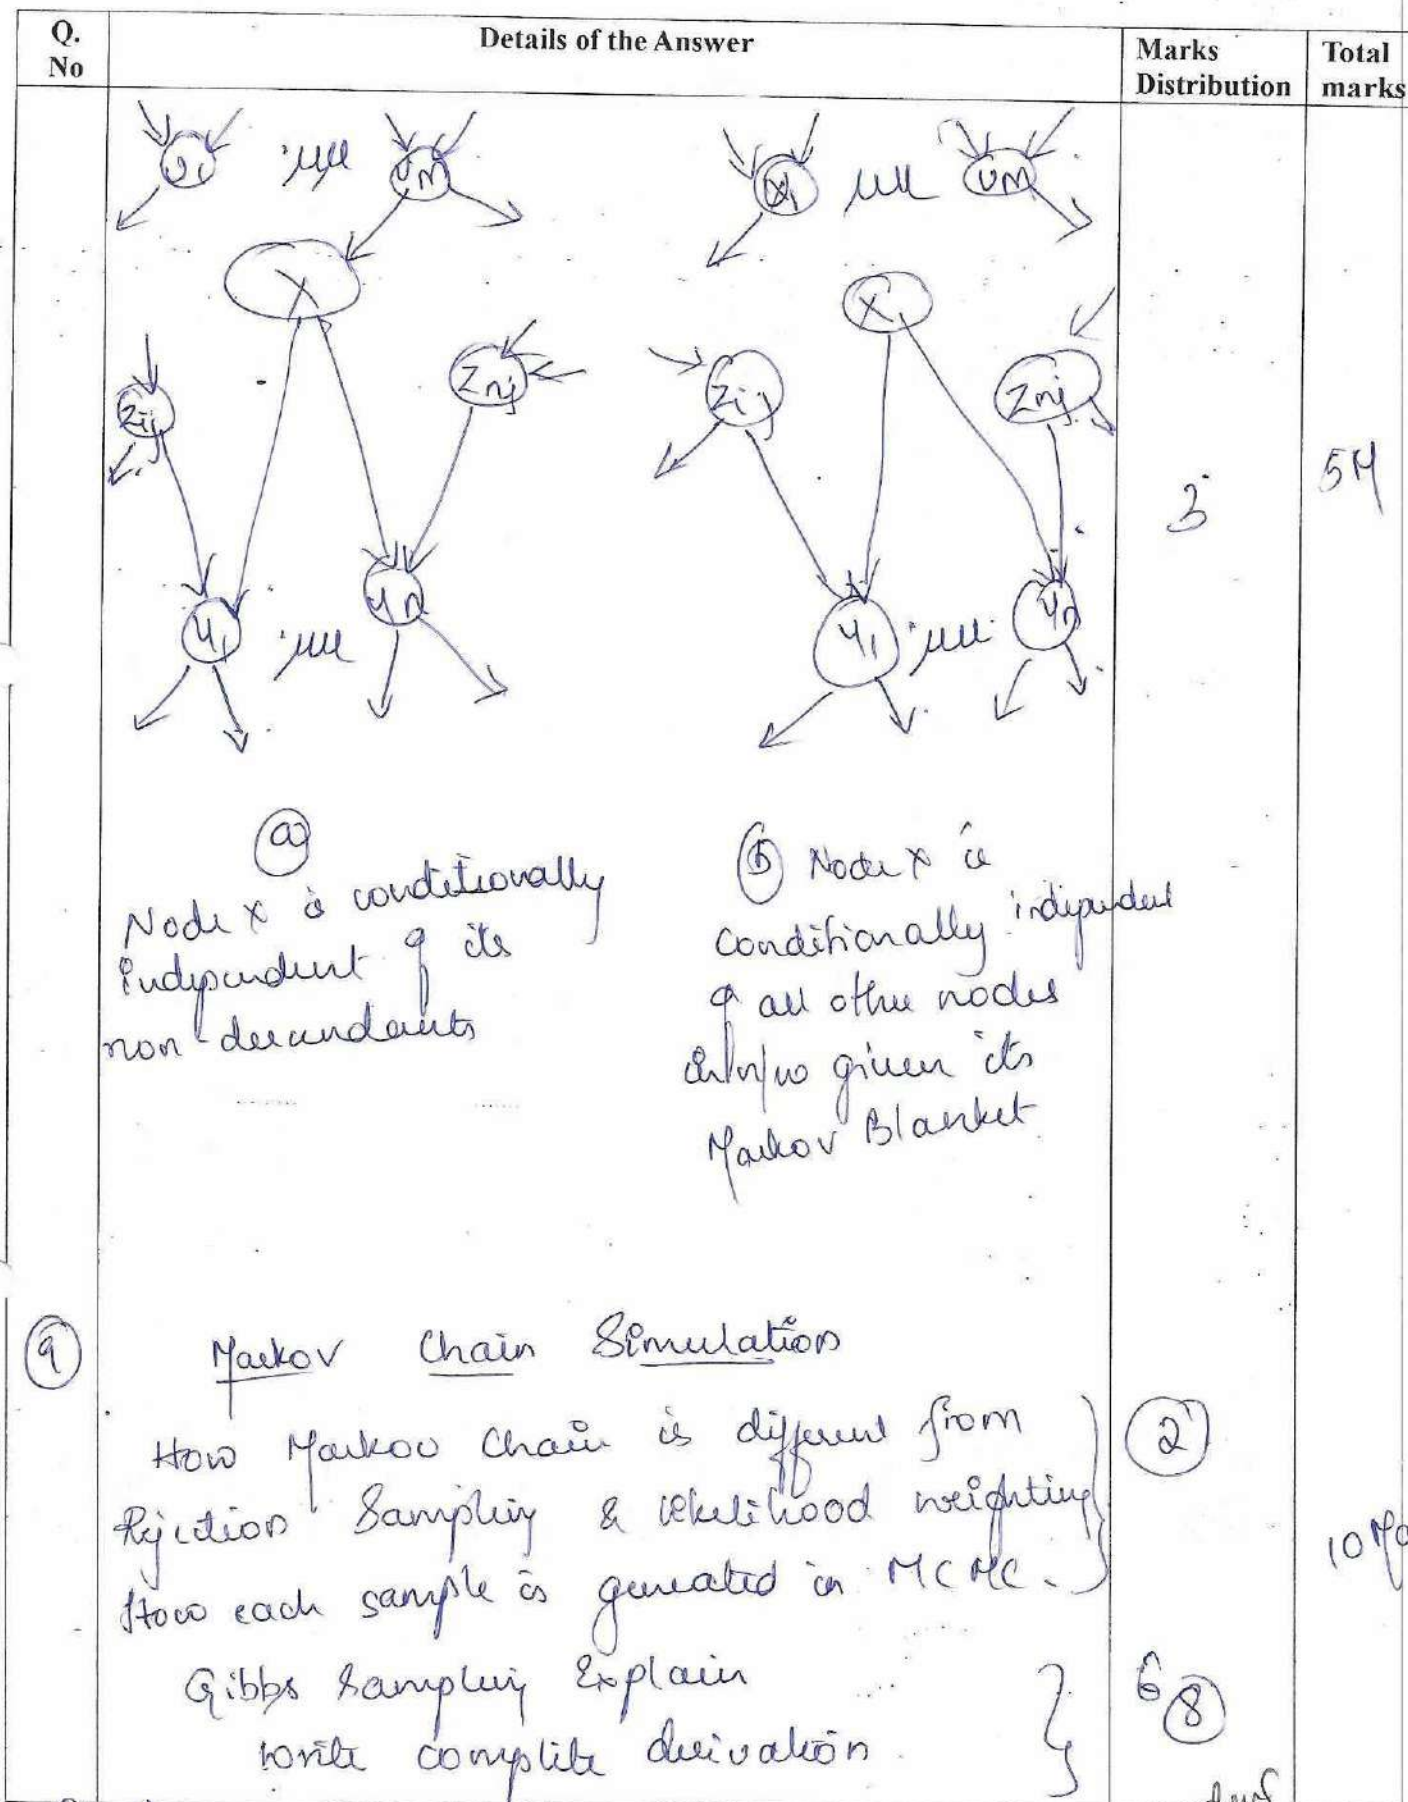 Q. No
Details of the Answer
Marks Distribution
Total marks
U1
Um
X1
Um
X
X
Zij
Znj
Zij
Znj
Y1
Yn
Y1
Yn
3
5M
(a)
Node X is conditionally
independent of its
non decendants
(b) Node X is
Conditionally independent
of all other nodes
in n/w given its
Markov Blanket
(9)
Markov Chain Simulation
How Markov Chain is different from
Rejection Sampling & likelihood weighting
How each sample is generated in MCMC.
(2)
Gibbs Sampling Explain
Write complete derivation
6 (8)